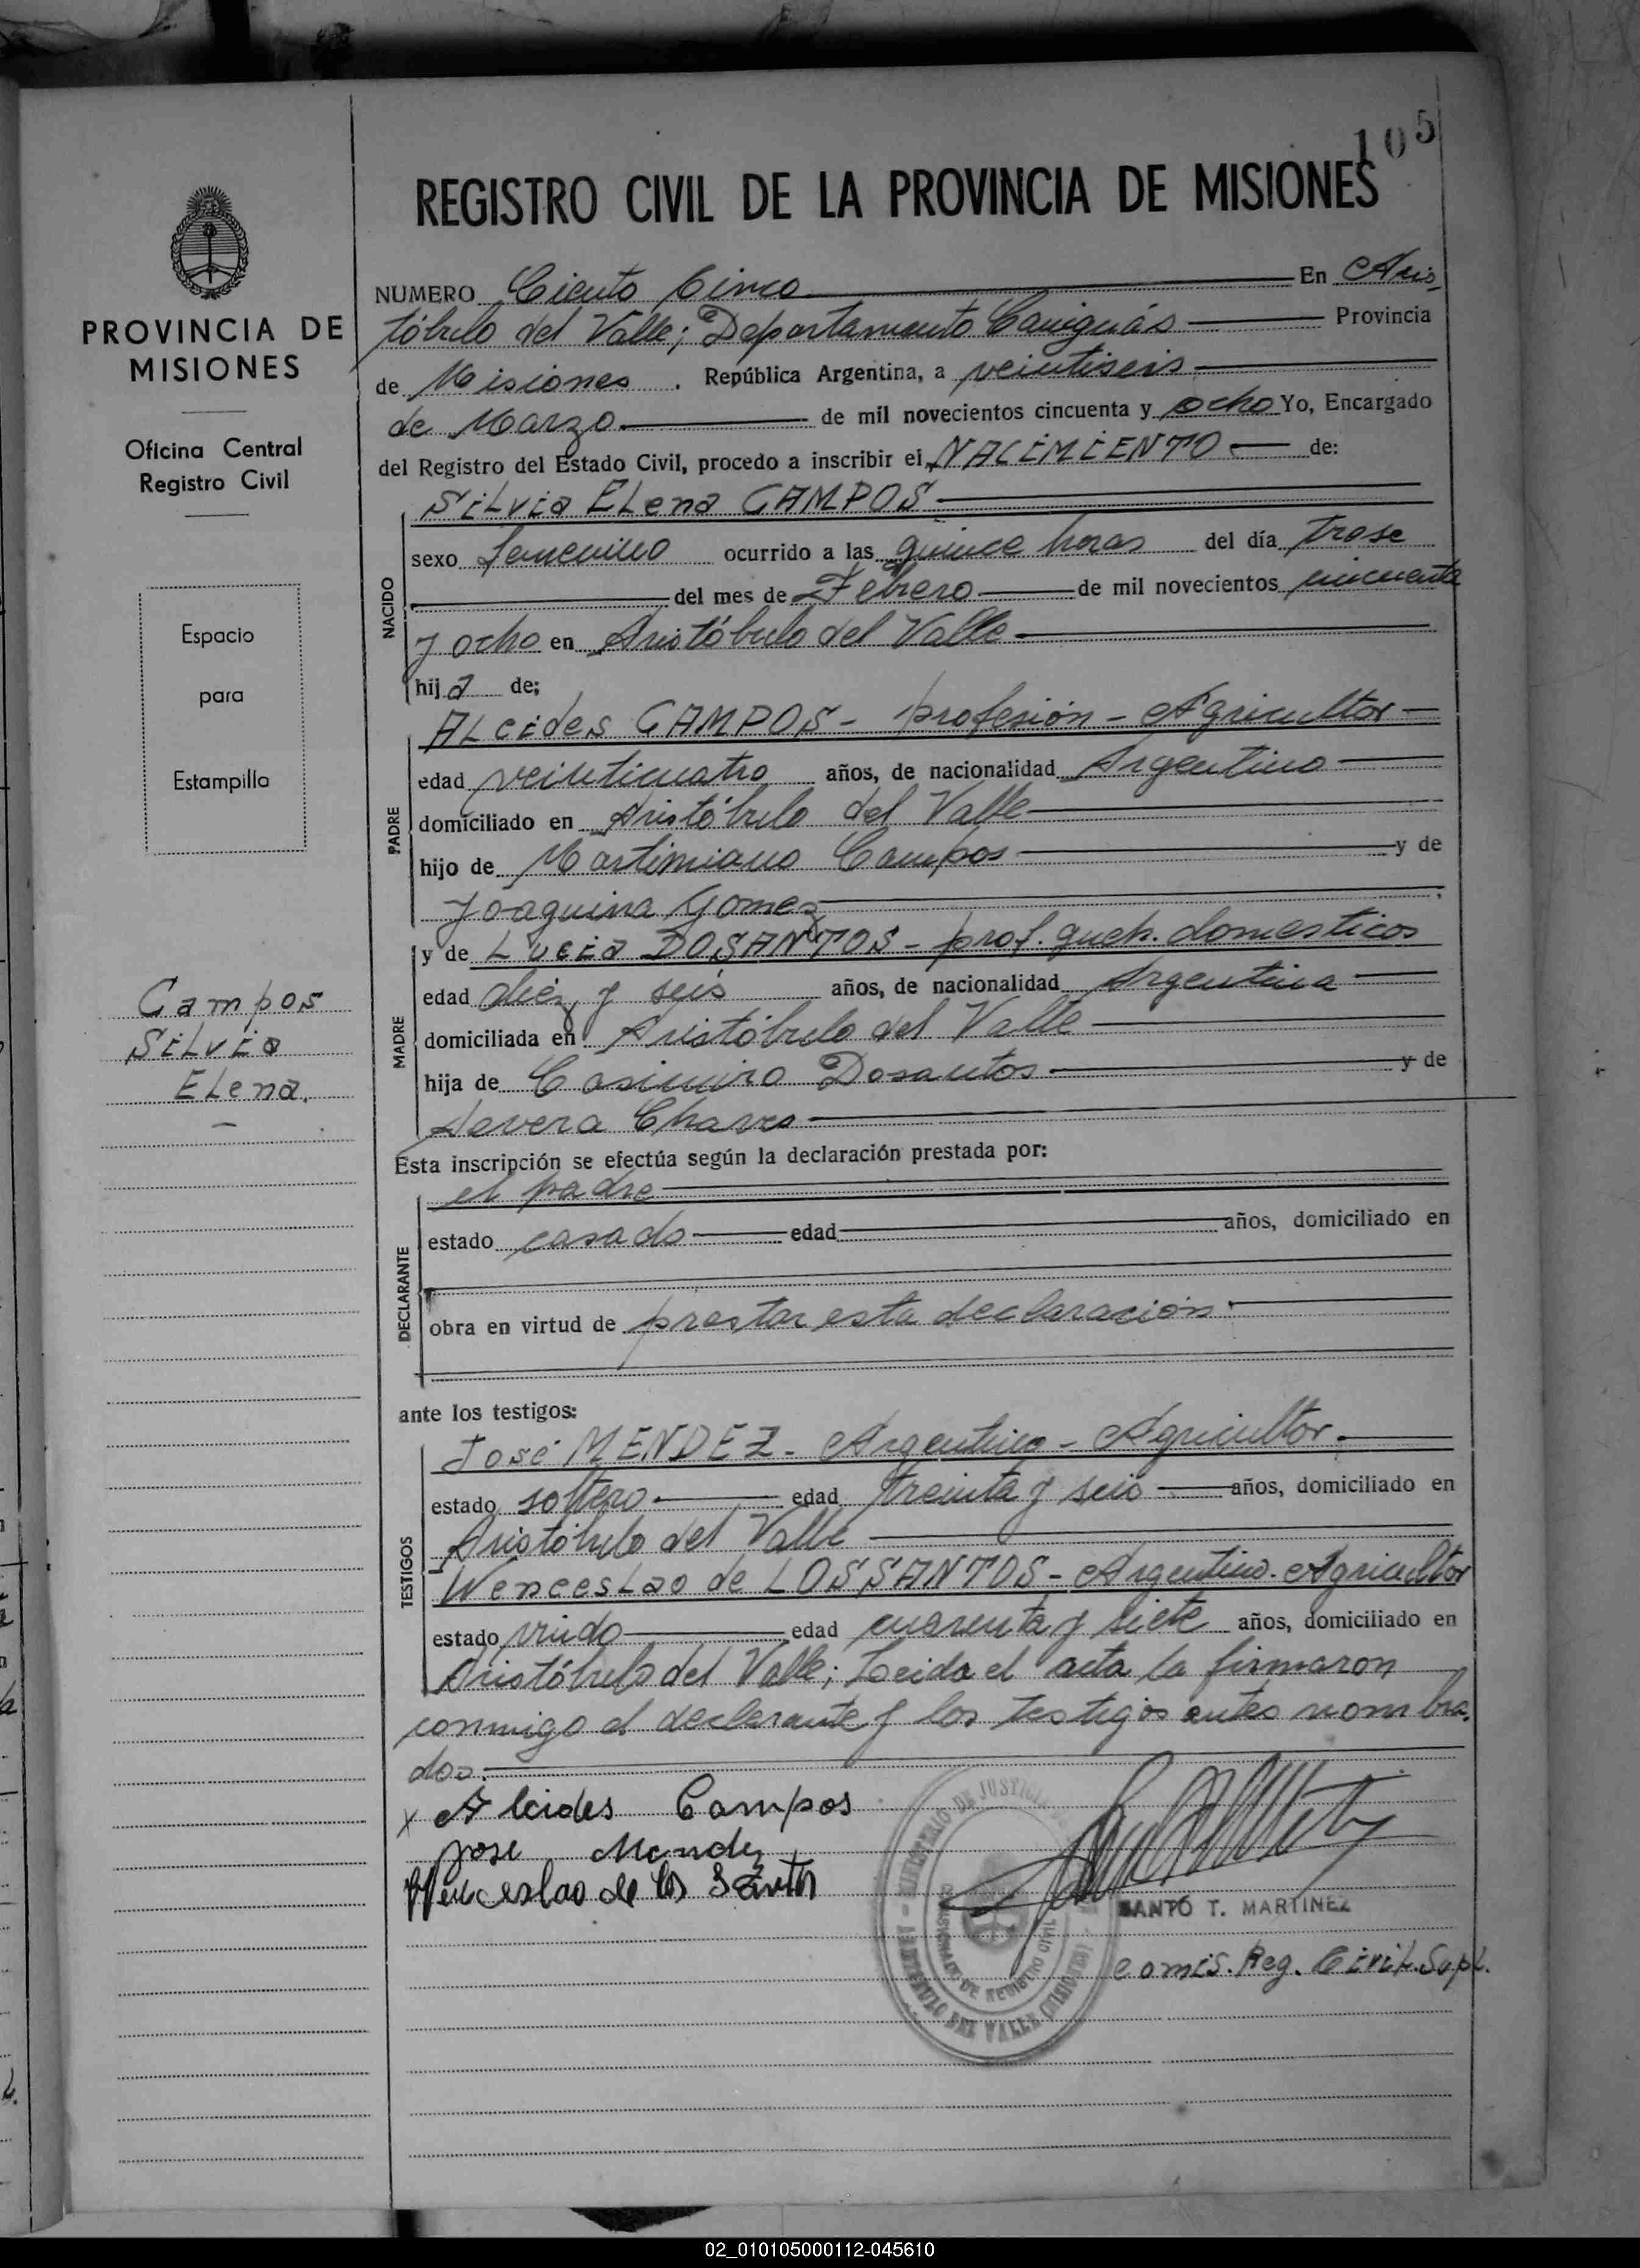 105
REGISTRO CIVIL DE LA PROVINCIA DE MISIONES
PROVINCIA DE
MISIONES
Oficina Central
Registro Civil
Espacio
para
Estampilla
Campos
Silvia
Elena.
NUMERO Ciento Cinco En Aris
tóbulo del Valle; Departamento Cainguás Provincia
de Misiones. República Argentina, a veintiseis
de Marzo de mil novecientos cincuenta y ocho Yo, Encargado
del Registro del Estado Civil, procedo a inscribir el NACIMIENTO de:
Silvia Elena CAMPOS
NACIDO
sexo femenino ocurrido a las quince horas del día trese
del mes de Febrero de mil novecientos cincuenta
y ocho en Aristóbulo del Valle
hija de;
PADRE
Alcides CAMPOS - profesión - Agricultor
edad veinticuatro años, de nacionalidad Argentino
domiciliado en Aristóbulo del Valle
hijo de Martimiano Campos y de
Joaquina Gomez
MADRE
y de Lucia DOSANTOS - prof. queh. domesticos
edad diez y seis años, de nacionalidad Argentina
domiciliada en Aristóbulo del Valle
hija de Casimiro Dosantos y de
Severa Chaves
Esta inscripción se efectúa según la declaración prestada por:
DECLARANTE
el padre
estado casado edad años, domiciliado en
obra en virtud de prestar esta declaración
ante los testigos:
TESTIGOS
José MENDEZ - Argentino - Agricultor.
estado soltero edad treinta y seis años, domiciliado en
Aristóbulo del Valle
Wenceslao de LOSSANTOS - Argentino - Agricultor
estado viudo edad cuarenta y siete años, domiciliado en
Aristóbulo del Valle; Leida el acta la firmaron
conmigo el declarante y los testigos antes nombra
dos.
x Alcides Campos
Jose Mendez
Wenceslao de los Santos
MINISTERIO DE JUSTICIA
REGISTRO CIVIL
ARISTOBULO DEL VALLE (MISIONES)
SANTO T. MARTINEZ
Comis. Reg. Civil. Supl.
02_010105000112-045610